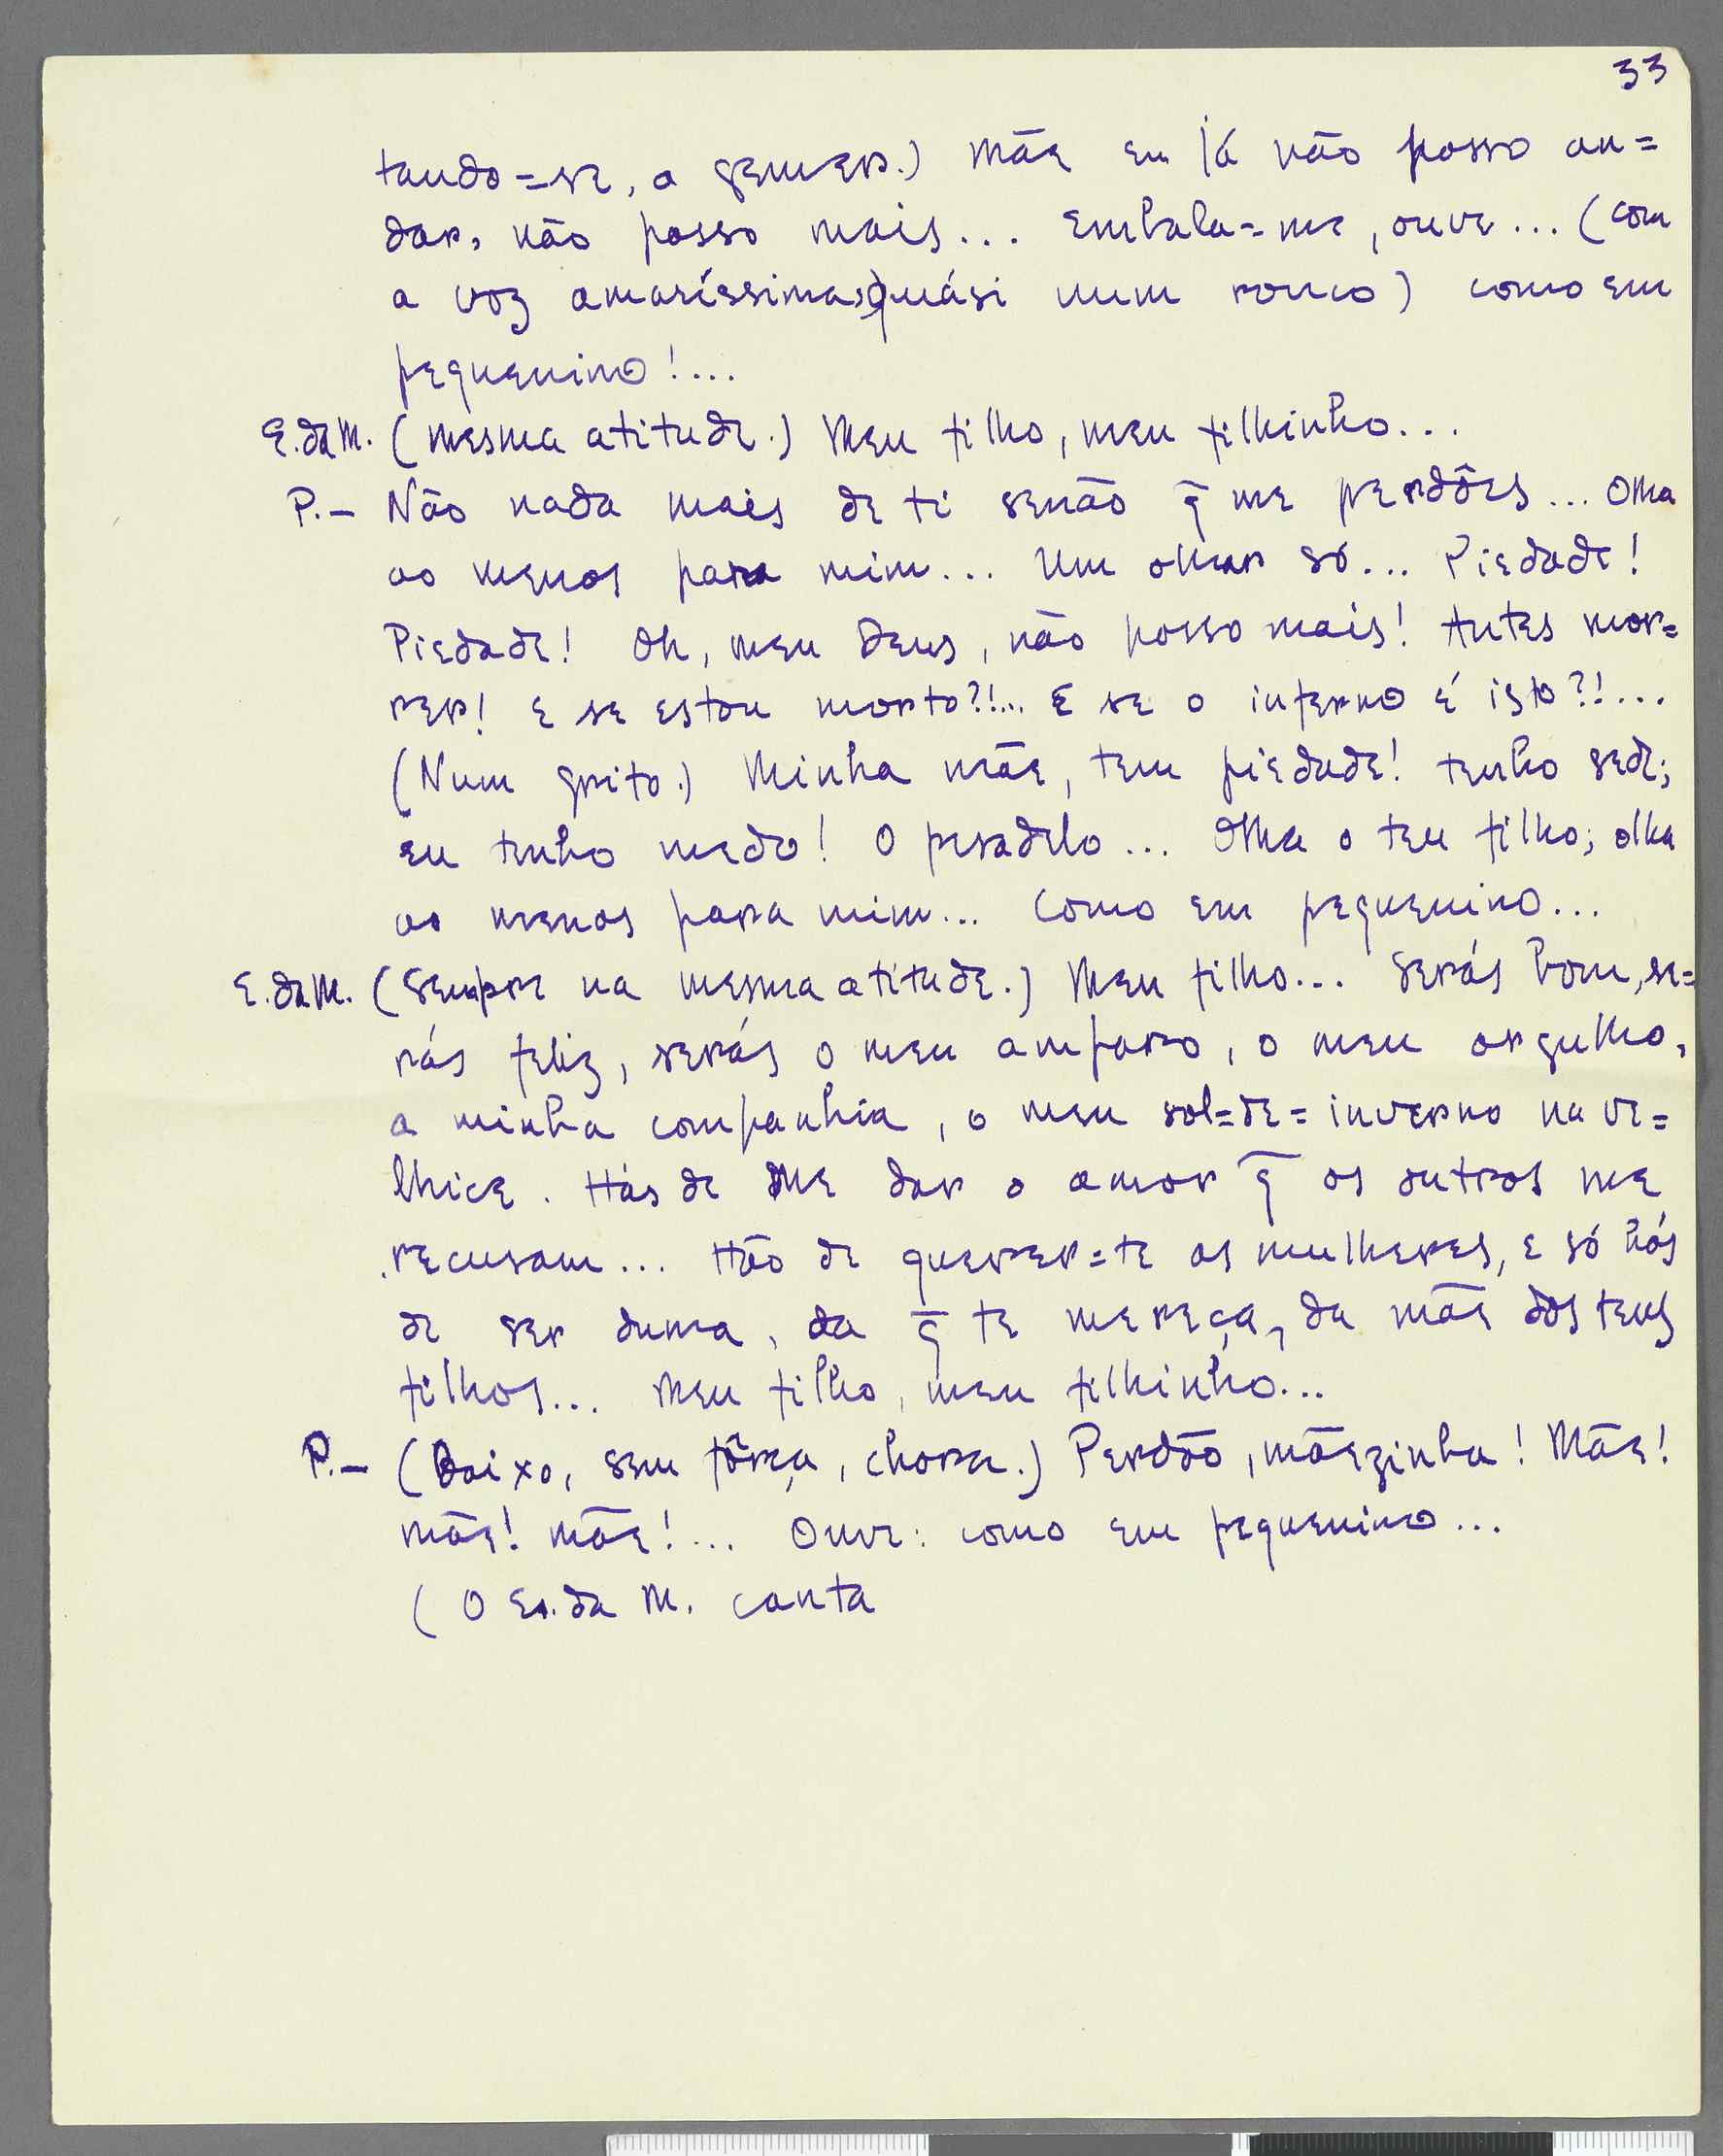 33
tando=se, a gemer.) Mãe eu já não posso an=
dar, não posso mais... Embala=me, ouve... (com
a voz amaríssima, quási num rouco) como em
pequenino!...
E. da M. (mesma atitude.) Meu filho, meu filhinho...
P.- Não nada mais de ti senão q̄ me perdôes... Olha
ao menos para mim... Um olhar só... Piedade!
Piedade! Oh, meu Deus, não posso mais! Antes mor=
rer! E se estou morto?!... E se o inferno é isto?!...
(Num grito.) Minha mãe, tem piedade! tenho sede;
eu tenho medo! O pesadelo... Olha o teu filho; olha
ao menos para mim... Como em pequenino...
E. da M. (Sempre na mesma atitude.) Meu filho... Serás bom, se=
rás feliz, serás o meu amparo, o meu orgulho,
a minha companhia, o meu sol=de=inverno na ve=
lhice. Hás de me dar o amor q̄ os outros me
recusam... Hão de querer=te as mulheres, e só hás
de ser duma, da q̄ te mereça, da mãe dos teus
filhos... Meu filho, meu filhinho...
P.- (Baixo, sem fôrça, chora.) Perdão, mãezinha! Mãe!
mãe! mãe!... Ouve: como em pequenino...
(O E. da M. canta